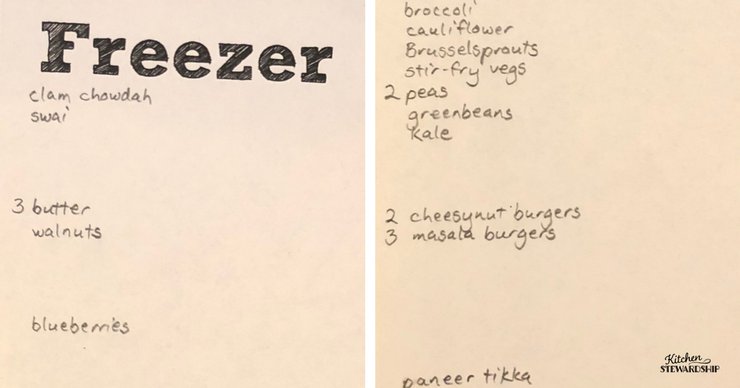 Freezer
clam chowdah
swai
3 butter
walnuts
blueberries
broccoli
cauliflower
Brusselsprouts
stir-fry vegs
2 peas
greenbeans
kale
2 cheesynut burgers
3 masala burgers
paneer tikka
Kitchen
STEWARDSHIP